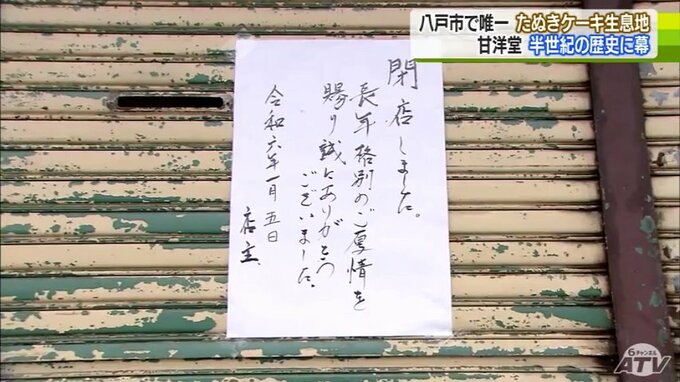 八戸市で唯一 たぬきケーキ生息地
甘洋堂 半世紀の歴史に幕
閉店しました。
長年格別のご厚情を
賜り誠にありがとう
ございました。
令和六年一月五日
店主
6チャンネル
ATV